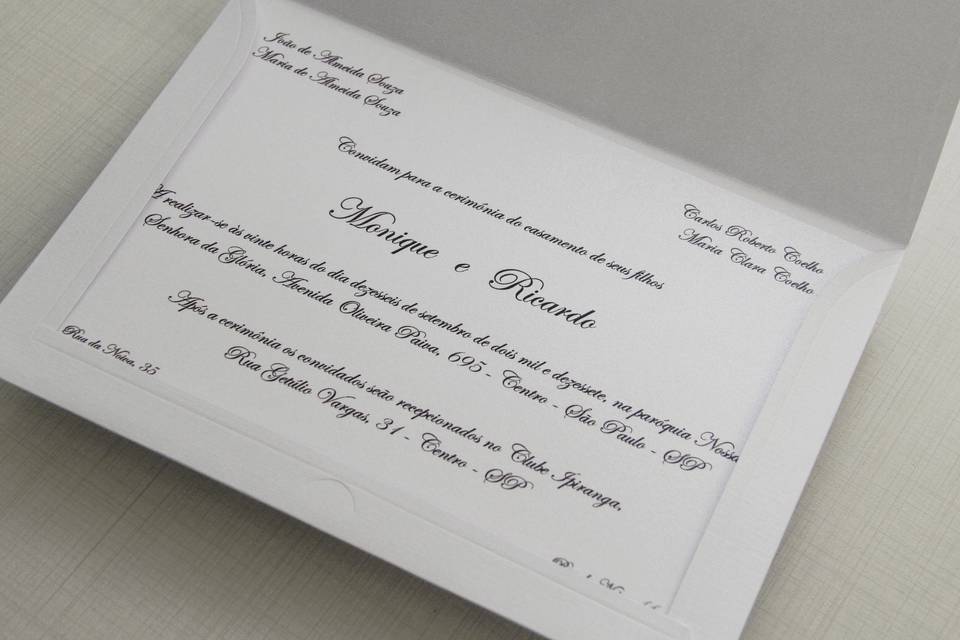 João de Almeida Souza
Maria de Almeida Souza
Carlos Roberto Coelho
Maria Clara Coelho
Convidam para a cerimônia do casamento de seus filhos
Monique e Ricardo
A realizar-se às vinte horas do dia dezesseis de setembro de dois mil e dezessete, na paróquia Nossa
Senhora da Glória, Avenida Oliveira Paiva, 695 - Centro - São Paulo - SP
Após a cerimônia os convidados seão recepcionados no Clube Ipiranga,
Rua Getúlio Vargas, 31 - Centro - SP
Rua da Noiva, 35